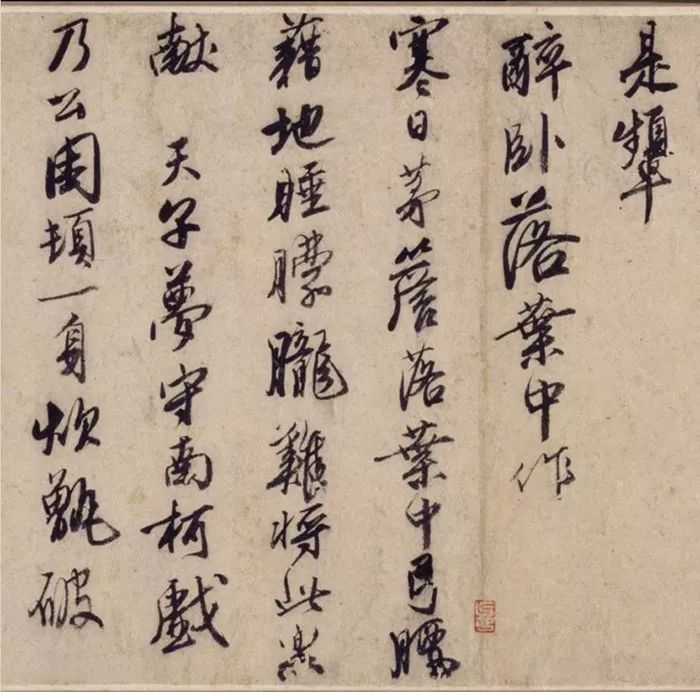 是顰
醉臥落葉中作
寒日茅簷落葉中腰
藉地睡朦朧難將此樂
獻 天子夢守南柯戲
乃公困頓一身炊甑破